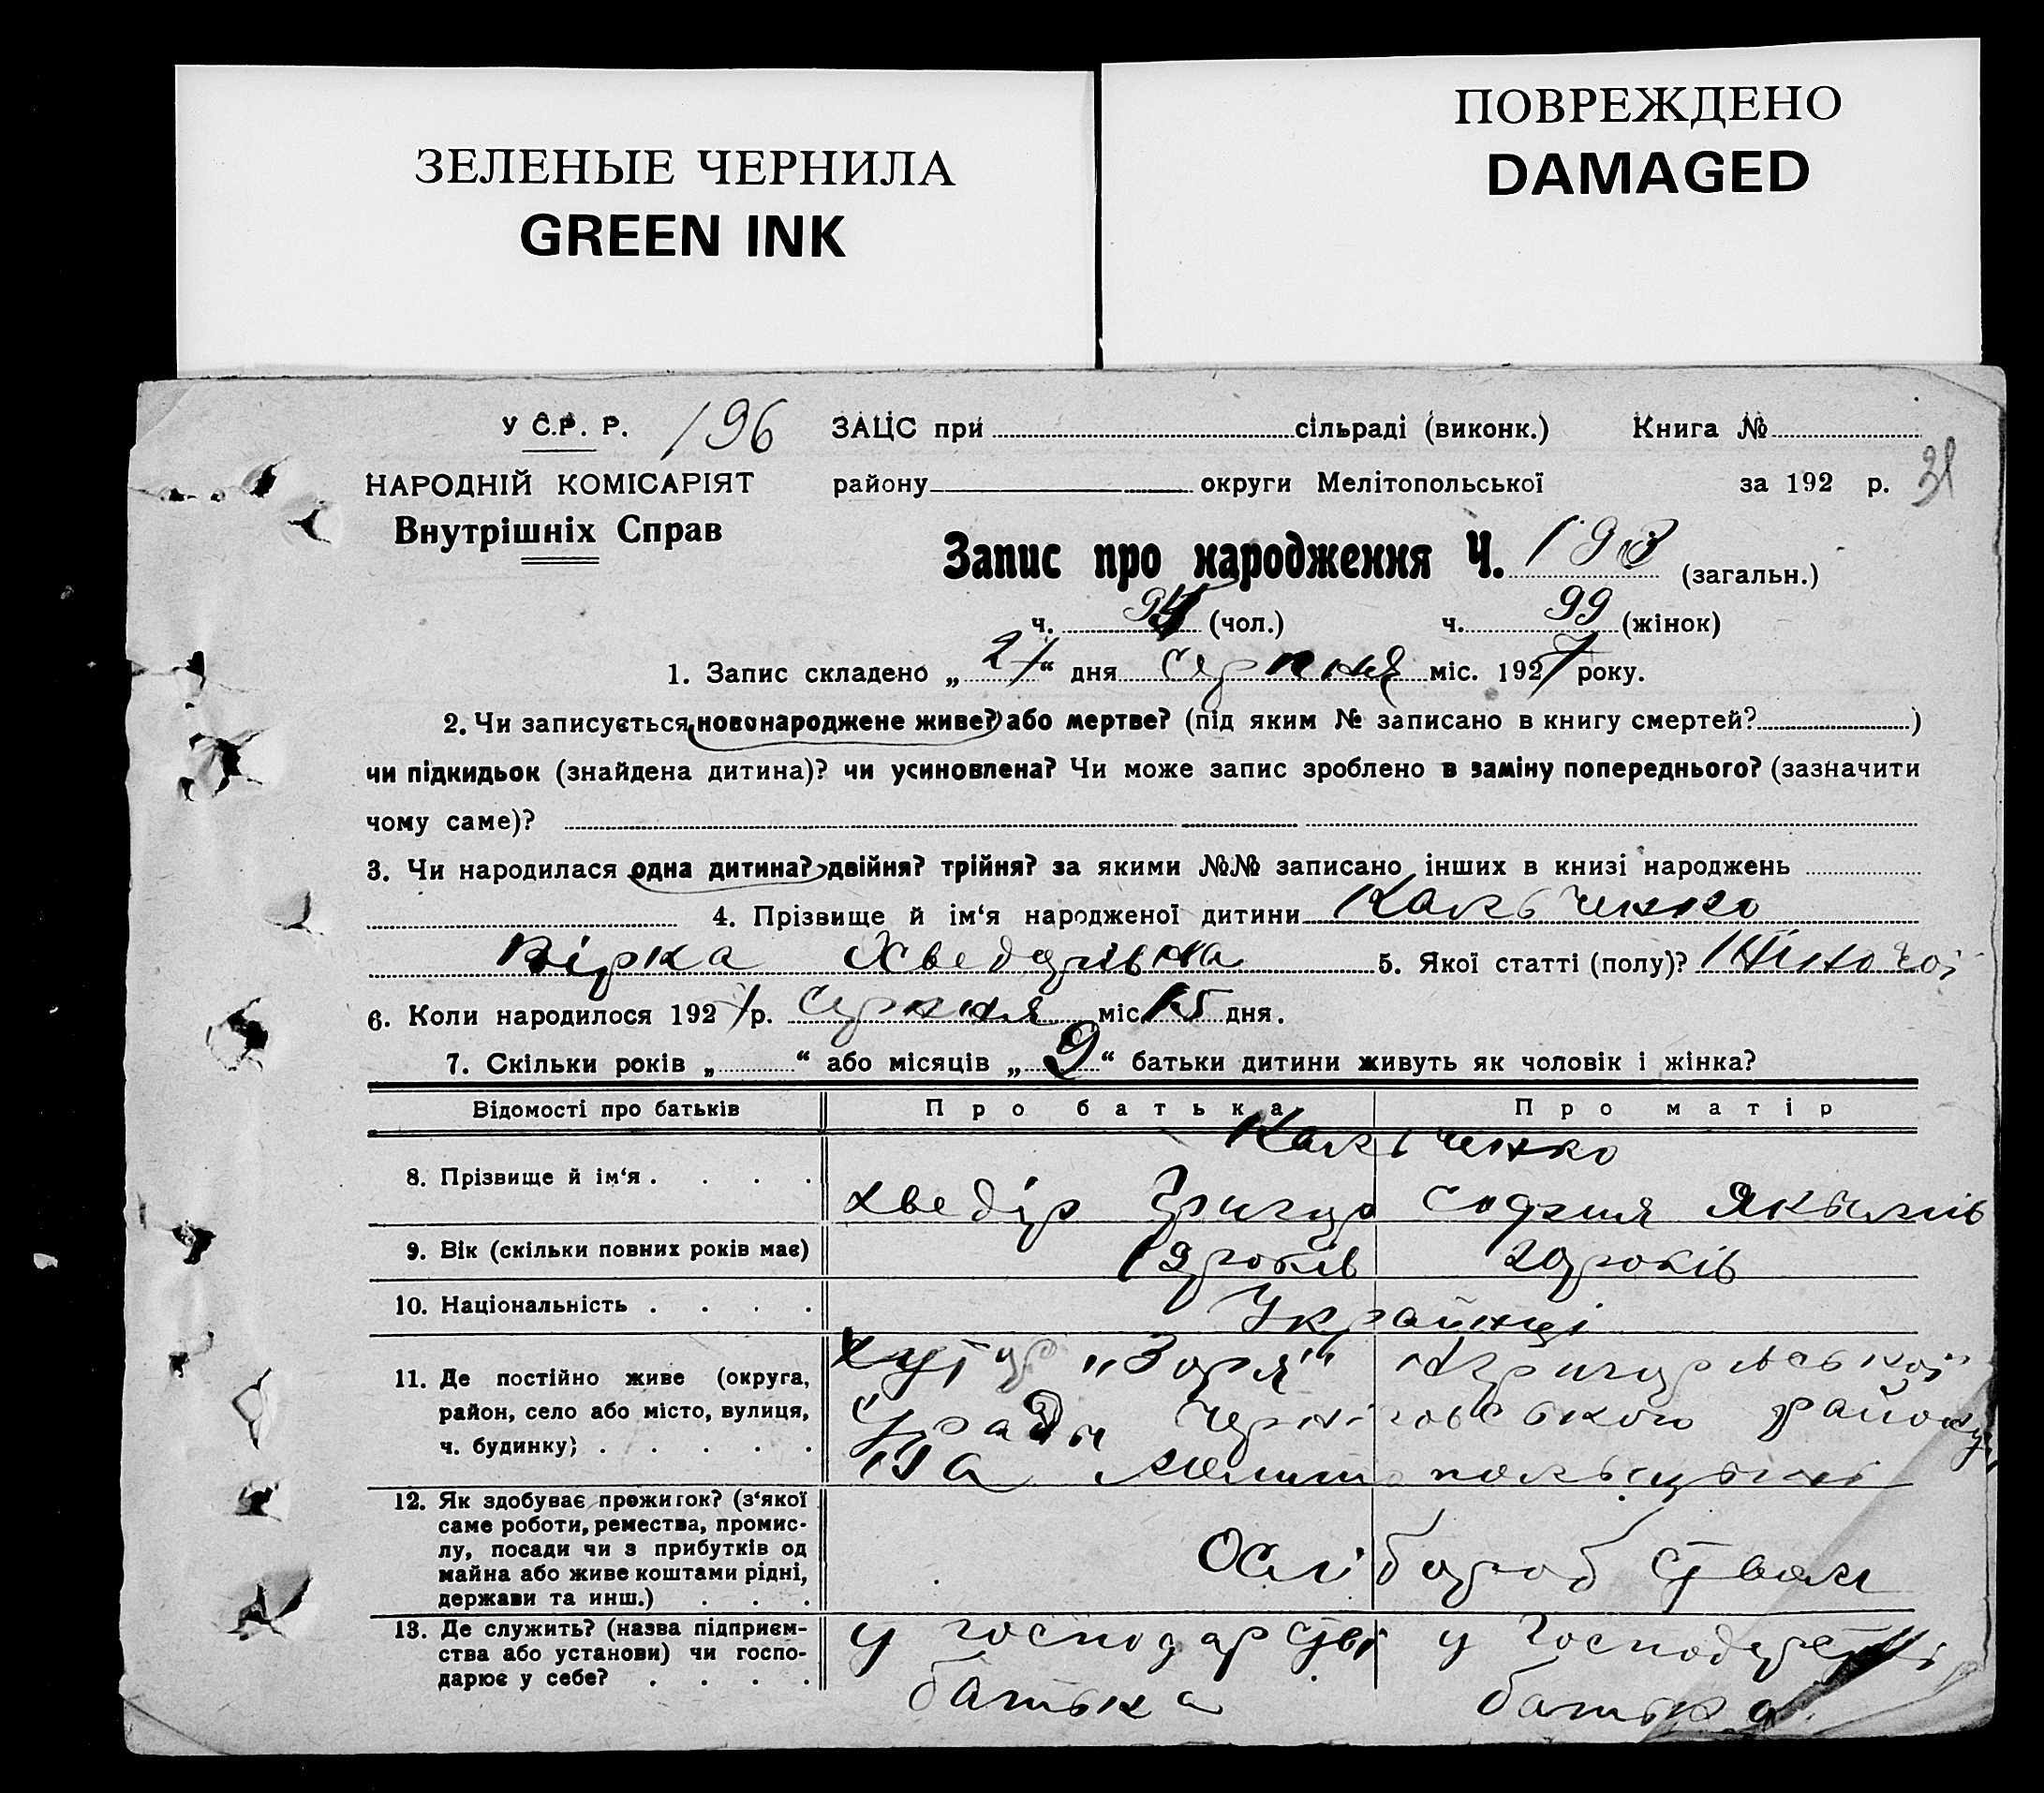 ЗЕЛЕНЫЕ ЧЕРНИЛА
GREEN INK
ПОВРЕЖДЕНО
DAMAGED
У С.Р. Р. 196 ЗАЦС при сільраді (виконк.) Книга №
НАРОДНІЙ КОМІСАРІЯТ району округи Мелітопольської за 192 р. 31
Внутрішніх Справ
Запис про народження Ч. 193 (загальн.)
ч. 94 (чол.) ч. 99 (жінок)
1. Запис складено „27“ дня серпня міс. 1927 року.
2. Чи записується новонароджене живе? або мертве? (під яким № записано в книгу смертей? )
чи підкидьок (знайдена дитина)? чи усиновлена? Чи може запис зроблено в заміну попереднього? (зазначити
чому саме)?
3. Чи народилася одна дитина? двійня? трійня? за якими №№ записано інших в книзі народжень
4. Прізвище й ім‘я народженої дитини Кальченко
Вірка Хведорівна 5. Якої статті (полу)? Жіночої
6. Коли народилося 1927 р. серпня міс 15 дня.
7. Скільки років „ “ або місяців „9“ батьки дитини живуть як чоловік і жінка?
Відомості про батьків Про батька Про матір
Кальченко
8. Прізвище й ім‘я . . . . Хведір Григор София Якымів
9. Вік (скільки повних років має) 19 років 20 років
10. Національність . . . . Українці
11. Де постійно живе (округа, хутор „Зоря“ Григорівської
район, село або місто, вулиця, с/ради Черніговського району
ч. будинку) . . . . . на Мелітопольщині
12. Як здобуває прожиток? (з‘якої
саме роботи, ремества, промис-
лу, посади чи з прибутків од
майна або живе коштами рідні,
держави та инш.) . . .
13. Де служить? (назва підприєм- у господарстві у господарстві
ства або установи) чи госпо- батька батька
дарює у себе? . . . .